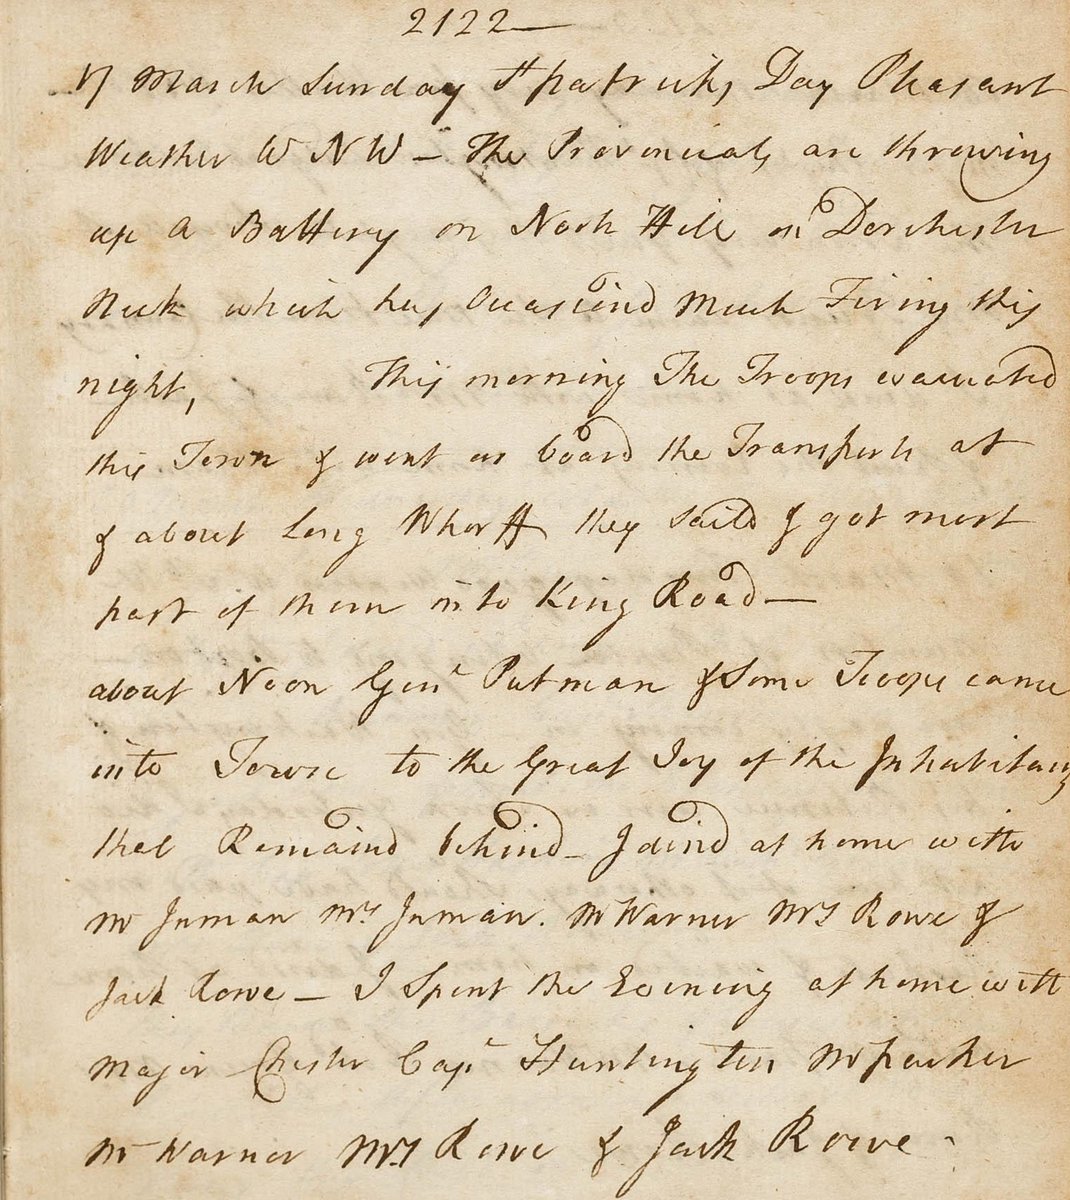 2122
17 March Sunday St patricks Day Pleasant
Weather W N W — The Provincials are throwing
up a Battery on Nook Hill on Dorchester
Neck which has Occasiond Much Firing this
night, This morning The Troops evacuated
this Town & went on board the Transports at
& about Long Wharff they saild & got most
part of them into King Road —
about Noon Genl Putman & Some Troops came
into Town to the Great Joy of the Inhabitants
that Remaind behind — I dind at home with
Mr Inman Mrs Inman. Mr Warner Mrs Rowe &
Jack Rowe — I Spent the Evening at home with
Major Chester Capt Huntington Mr parker
Mr Warner Mrs Rowe & Jack Rowe -